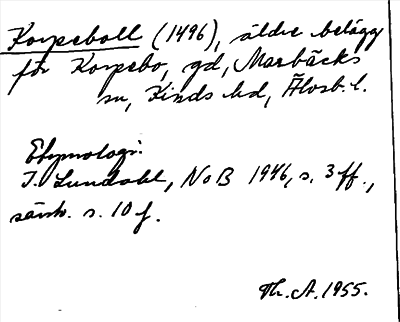 Korpeboll (1496), äldre belägg
för Korpebo, gd, Marbäcks
sn, Kinds hd, Älvsb. l.
Etymologi:
I. Lundahl, NoB 1946, s. 3 ff.,
särsk. s. 10 f.
Th. A. 1955.